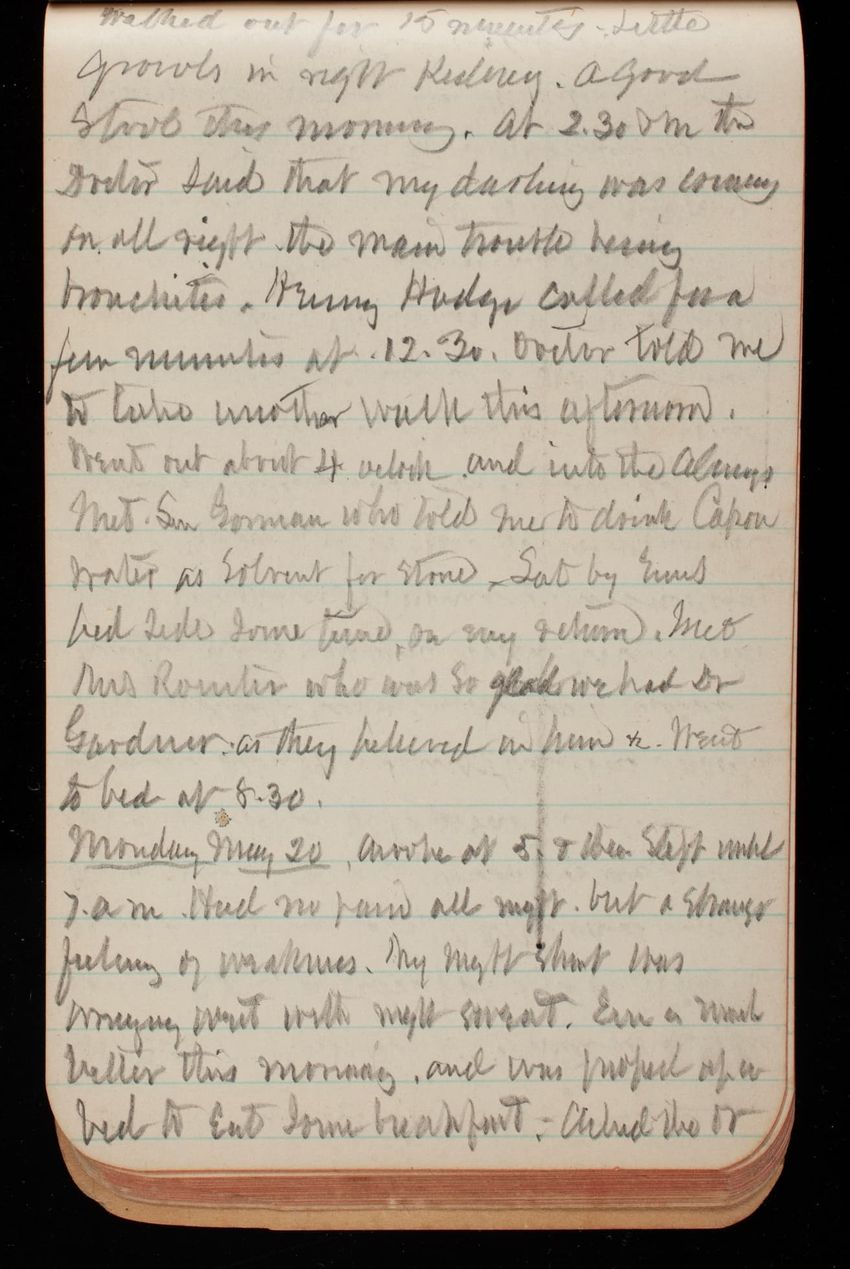 Walked out for 15 minutes. Little
growls in right Kidney. A good
Stool this morning. At 2.30 P m the
Doctor said that my darling was coming
on all right the main trouble being
bronchites. Henry Hodge called for a
few minutes at .12.30. Doctor told me
to take another walk this afternoon.
Went out about 4 oclock and into the
Met Sen Gorman who told me to drink Capon
Water as Solvent for Stone. Sat by Ems
bed side some time, on my return. Met
Mrs who was so glad we had Dr
Gardner. as they believed in him &c. Went
to bed at 8.30.
Monday May 20, awoke at 5. & then Slept until
7. a m. Had no pain all night. but a strange
feeling of weakness. My night shirt was
wringing wet with night sweat. Em is much
better this morning, and was proped up in
bed to Eat some breakfast. - Asked the Dr